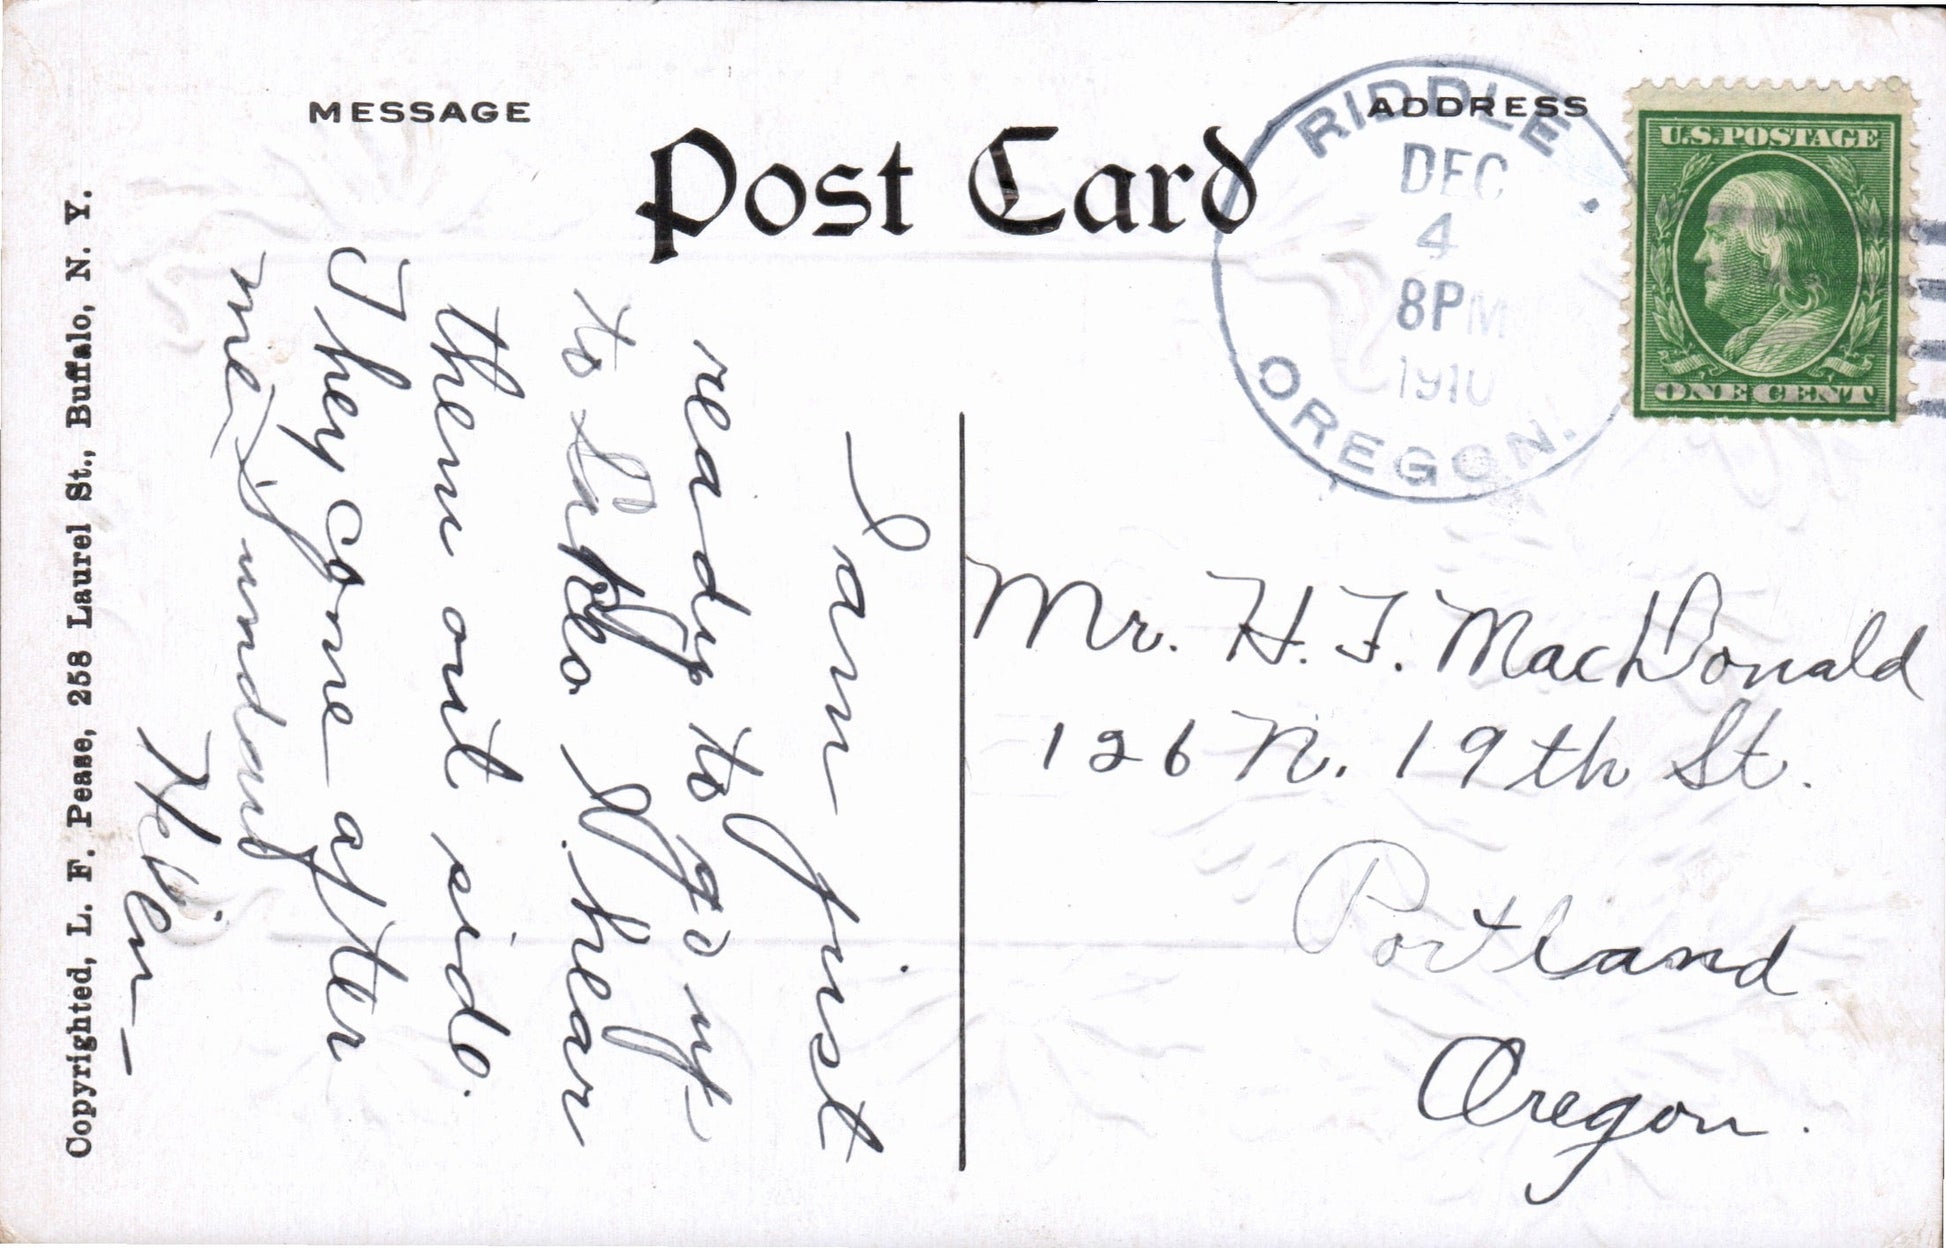 MESSAGE
Post Card
ADDRESS
RIDDLE
DEC
4
8PM
1910
OREGON.
U.S.POSTAGE
ONE CENT
I am just
ready to go
to I hear
them out side.
They come after
me Sunday
Helen
Mr. H. F. MacDonald
126 N. 19th St.
Portland
Oregon.
Copyrighted, L. F. Pease, 258 Laurel St., Buffalo, N. Y.